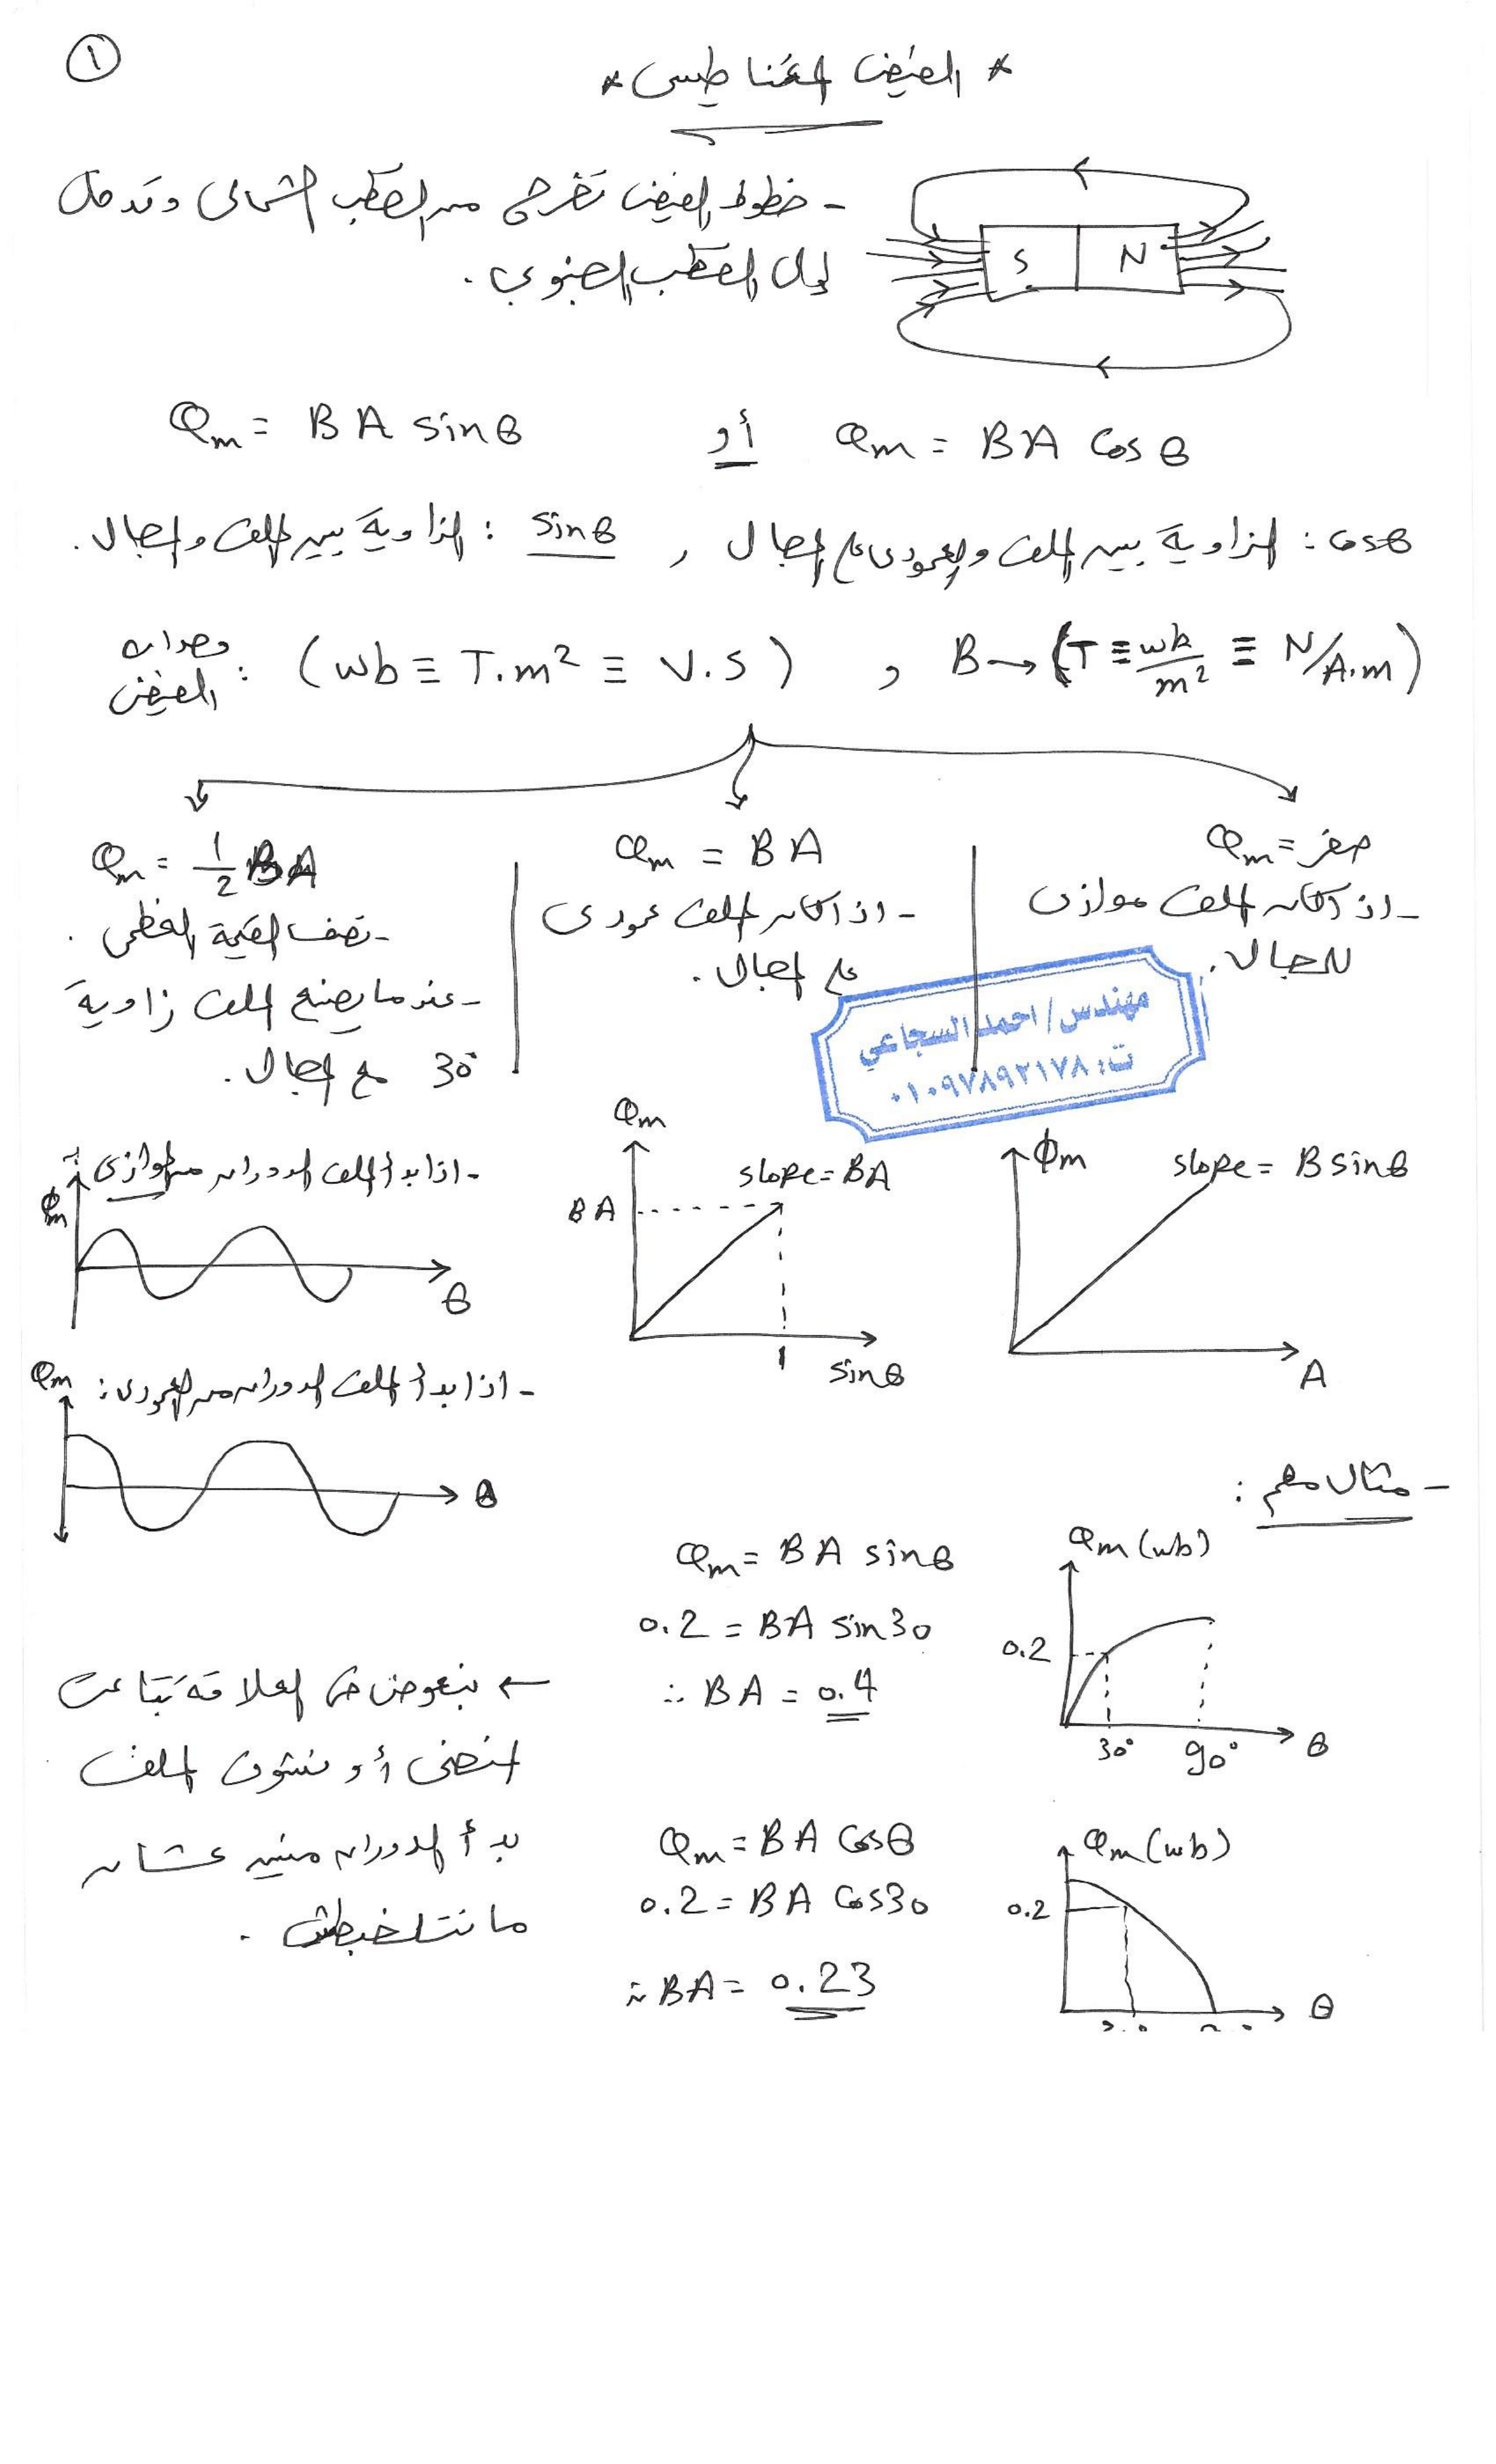 ١
* الفيض المغناطيسى *
- خطوط الفيض تخرج من القطب الشمالى وتدخل
إلى القطب الجنوبي.
S N
Φm = BA sinθ أو Φm = BA cosθ
cosθ : الزاوية بين الملف والعمودى على المجال , sinθ : الزاوية بين الملف والمجال.
وحدات الفيض : (wb ≡ T.m² ≡ V.s) , B → (T ≡ wb/m² ≡ N/A.m)
Φm = صفر
- اذا كان الملف موازى
للمجال.
Φm = BA
- اذا كان الملف عمودى
على المجال.
Φm = 1/2 BA
- نصف القيمة العظمى.
- عندما يصنع الملف زاوية
30° مع المجال.
مهندس/ احمد السجاعي
ت: ٠١٠٩٧٨٩٢١٧٨
Φm
slope = B sinθ
A
Φm
slope = BA
BA
1
sinθ
- اذا بدأ الملف الدوران من الموازى :
Φm
θ
- اذا بدأ الملف الدوران من العمودى :
Φm
θ
- مثال مهم :
Φm (wb)
0.2
30° 90° θ
Φm = BA sinθ
0.2 = BA sin30
∴ BA = 0.4
← بنعوض فى العلاقة بتاعت
المنحنى أو نشوف الملف
بدأ الدوران منين عشان
ما نتلخبطش.
Φm (wb)
0.2
θ
Φm = BA cosθ
0.2 = BA cos30
∴ BA = 0.23